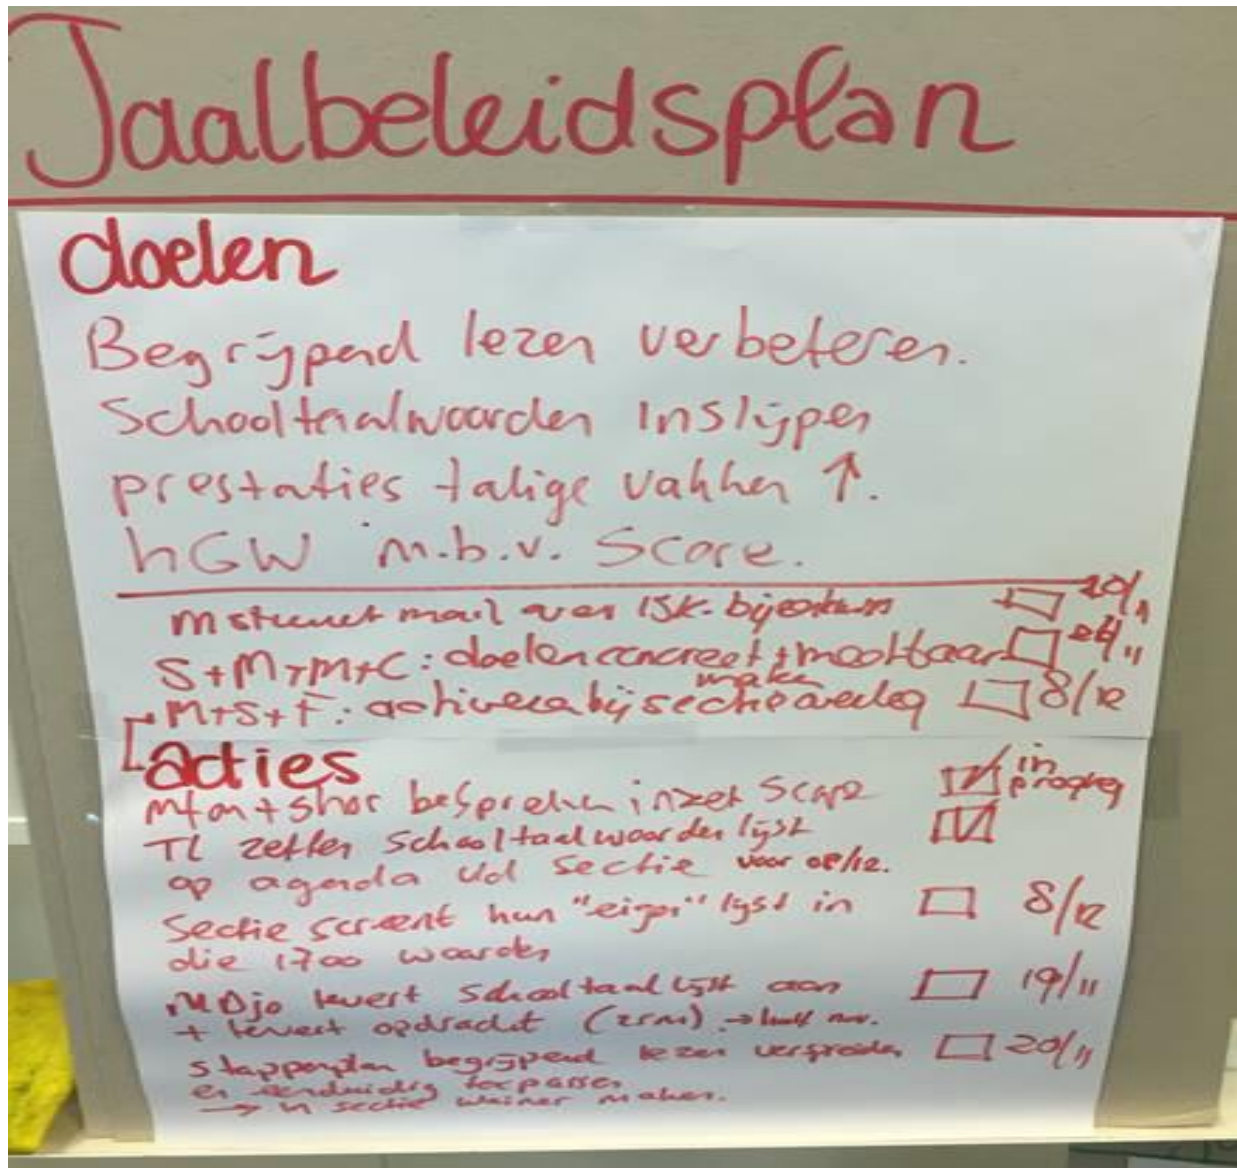 Taalbeleidsplan
doelen
Begrijpend lezen verbeteren.
Schooltaalwoorden inslijpen
prestaties talige vakken ↑.
hGW m.b.v. Score.
M stuurt mail over ISK-bijeenkomst 20/11
S+M+M+C: doelen concreet + meetbaar 26/11
maken
M+S+F: activeren bij sectieoverleg 8/12
acties
bespreken inzet in
TL zetten Schooltaalwoordenlijst
op agenda vd Sectie voor 08/12.
Sectie screent hun "eigen" lijst in 8/12
die 1700 woorden
levert Schooltaallijst aan 19/11
+ levert opdracht → half nov.
Stappenplan begrijpend lezen verspreiden 20/11
en eenduidig toepassen
→ in sectie maken.